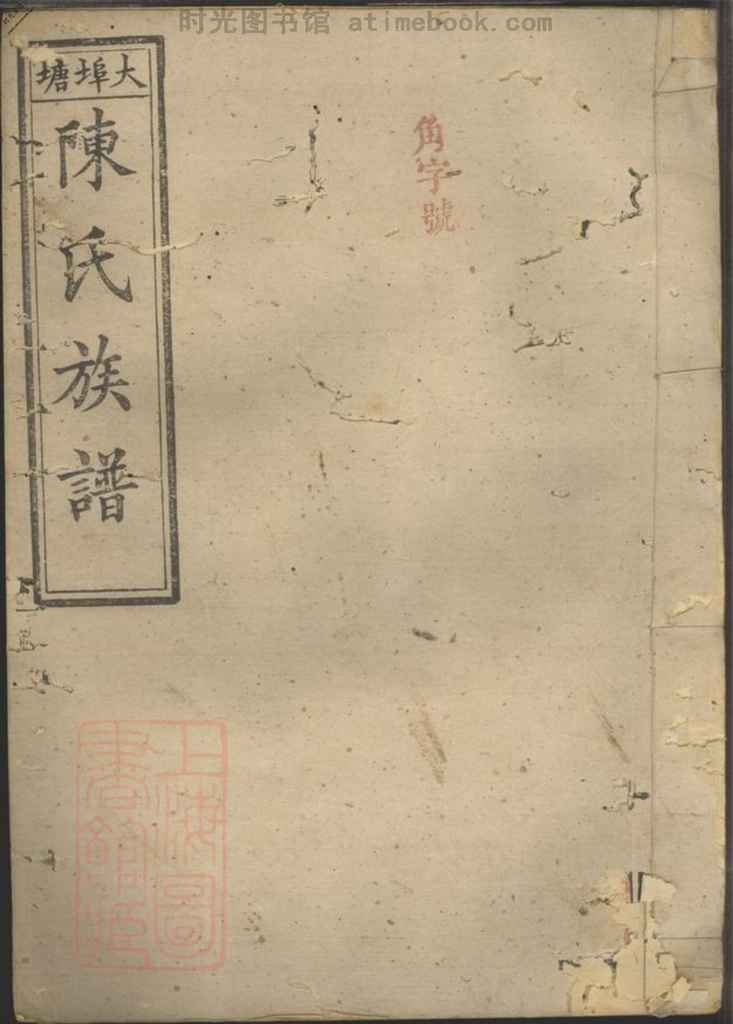 时光图书馆 atimebook.com
大埠塘
陳氏族譜
角字號
上海圖
書館藏